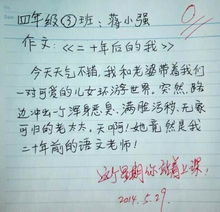 四年级③班:蒋小强
作文:《二十年后的我》
今天天气不错,我和老婆带着我们
一对可爱的儿女环游世界,突然,路
边冲出一个浑身恶臭、满脸污秽、无家
可归的老太太,天啊!她竟然是我
二十年前的语文老师!
0
这个星期你站着上课。
2014.5.29.